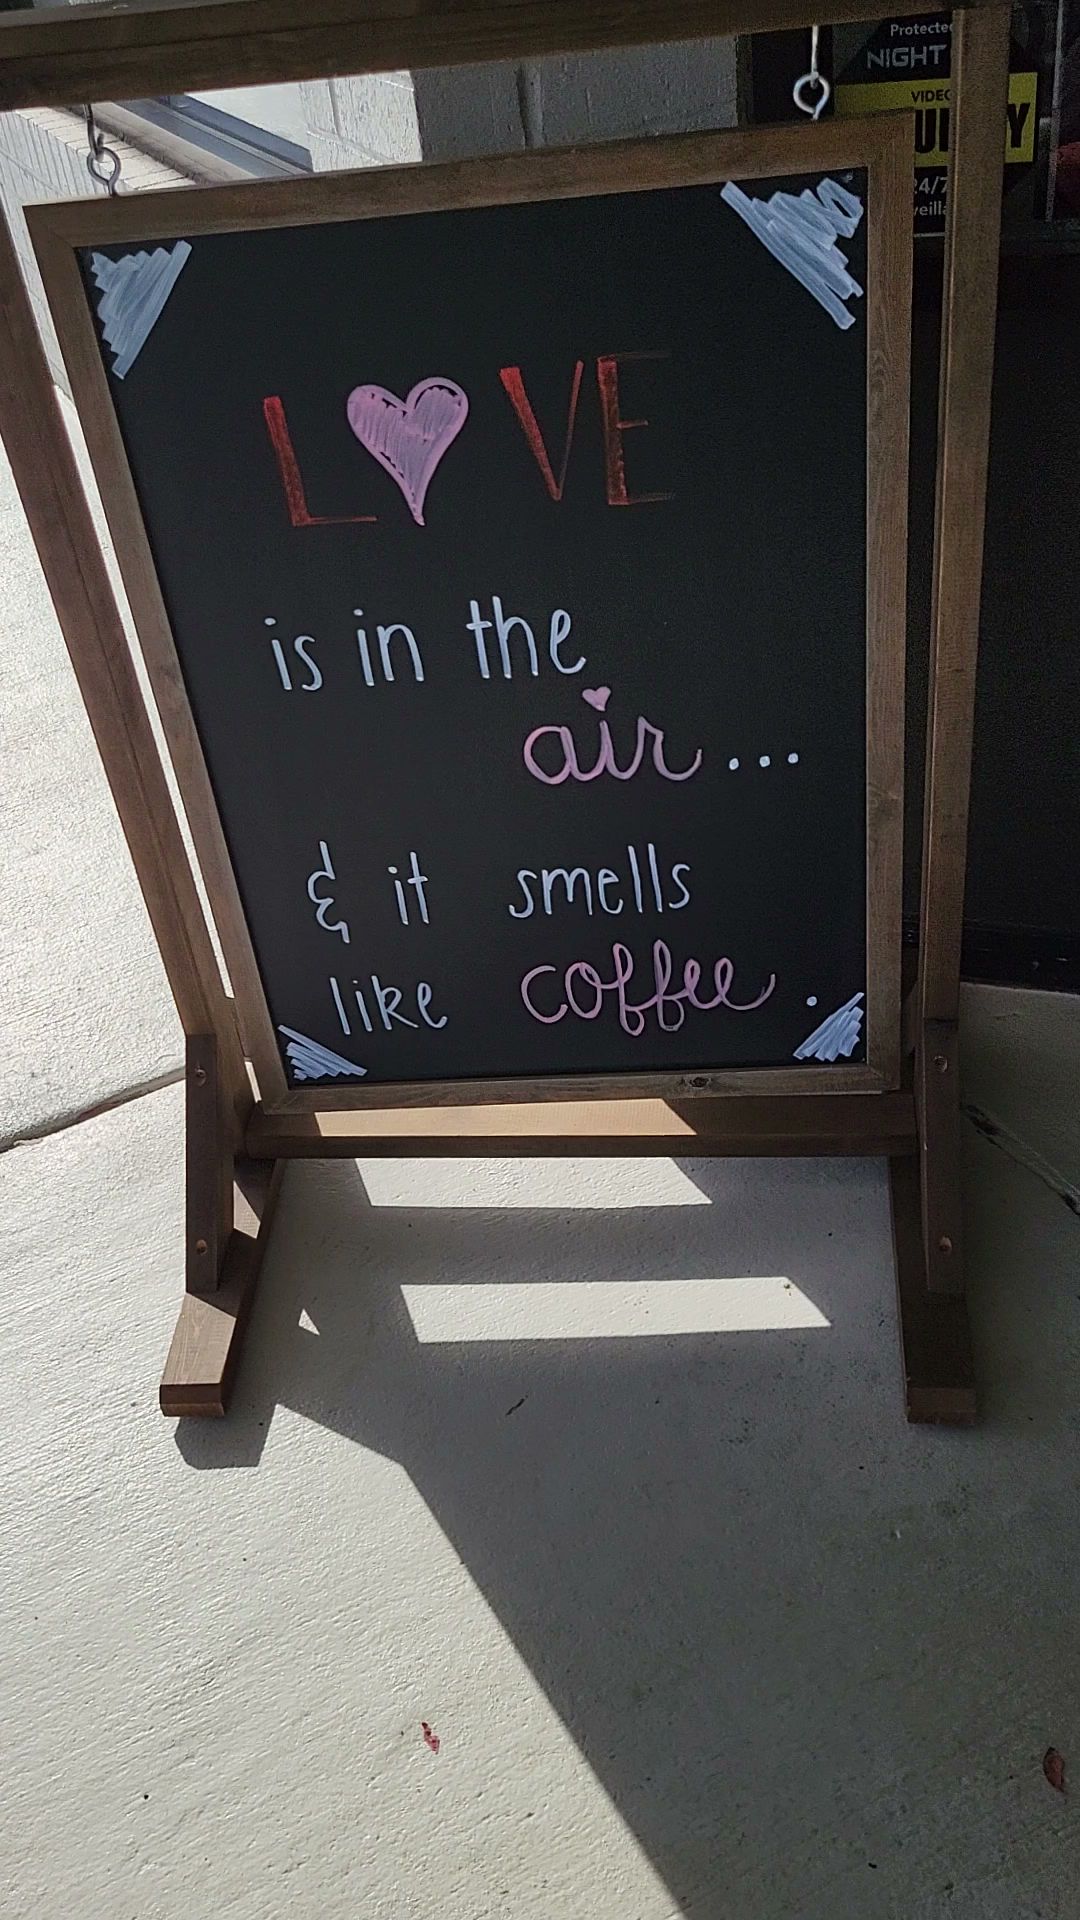 Protected
NIGHT
VIDEO
24/7
L♥VE
is in the
air...
& it smells
like coffee.